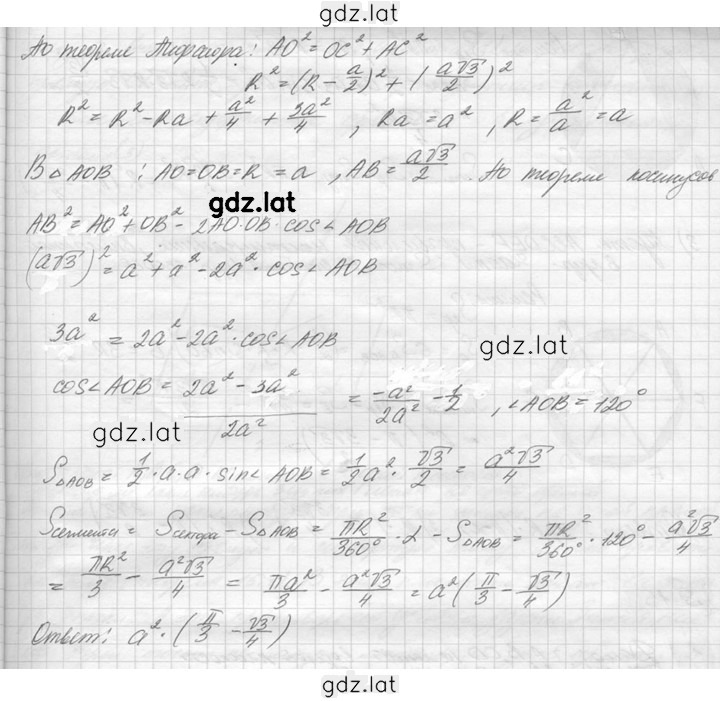 gdz.lat
По теореме Пифагора: AO² = OC² + AC²
R² = (R - a/2)² + (a√3/2)²
R² = R² - Ra + a²/4 + 3a²/4 , Ra = a² , R = a²/a = a
В △AOB : AO = OB = R = a , AB = a√3/2 . По теореме косинусов
gdz.lat
AB² = AO² + OB² - 2AO·OB·cos∠AOB
(a√3)² = a² + a² - 2a²·cos∠AOB
3a² = 2a² - 2a²·cos∠AOB
gdz.lat
cos∠AOB = (2a² - 3a²)/2a² = -a²/2a² - 1/2 , ∠AOB = 120°
gdz.lat
S△AOB = 1/2·a·a·sin∠AOB = 1/2 a²·√3/2 = a²√3/4
Sсегмента = Sсектора - S△AOB = πR²/360°·α - S△AOB = πR²/360°·120° - a²√3/4
= πR²/3 - a²√3/4 = πa²/3 - a²√3/4 = a²(π/3 - √3/4)
Ответ: a²·(π/3 - √3/4)
gdz.lat